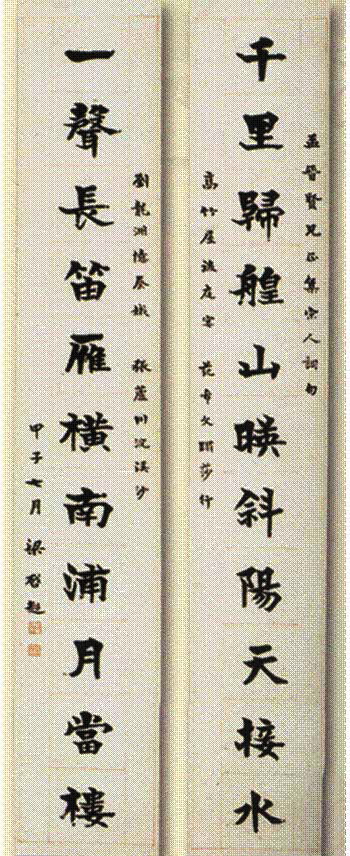 千里歸艎山暎斜陽天接水
孟晉賢兄正集宋人詞句
高竹屋 范希文蹋莎行
一聲長笛雁橫南浦月當樓
劉龍洲憶秦娥 張蘆川浣溪沙
甲子七月 梁啓超